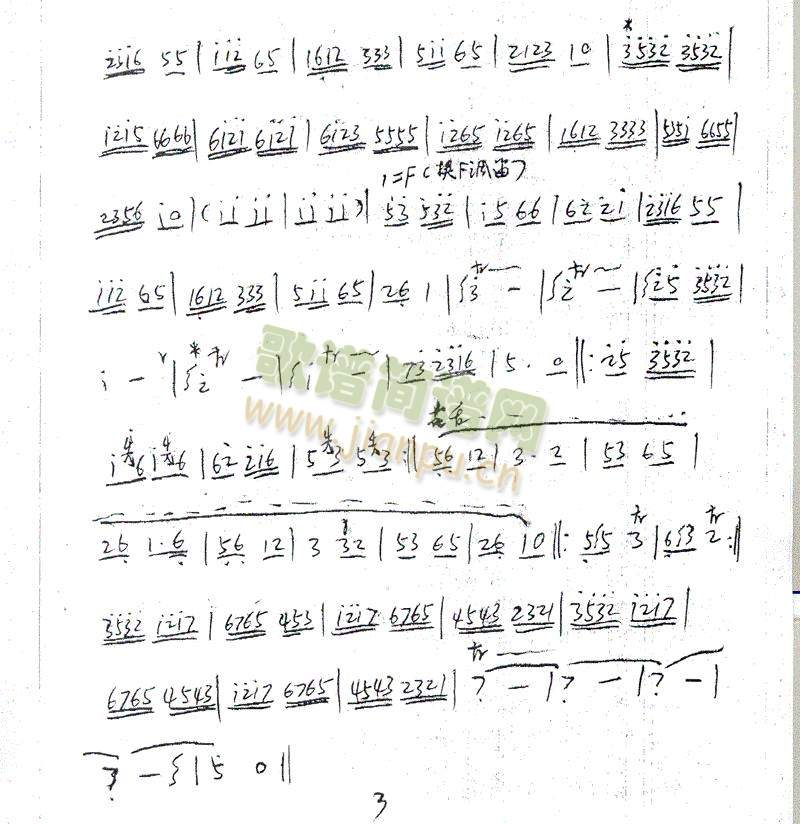 2316 55 | 112 65 | 1612 333 | 511 65 | 2123 10 | 3532 3532 |
1215 6666 | 6121 6121 | 6123 5555 | 1265 1265 | 1612 3333 | 5351 6655 |
1=F (换F调笛)
2356 i0 | (ii ii | ii ii) | 53 532 | i5 66 | 62 2i | 2316 55 |
112 65 | 1612 333 | 511 65 | 26 1 | 3 - | 2 - | 25 3532 |
i - | 2 - | i - | 2316 | 5. 0 ‖: 25 3532 |
歌谱简谱网
www.jianpu.cn
i6 i6 | 62 216 | 53 53 :‖ 56 12 | 3. 2 | 53 65 |
26 1.6 | 56 12 | 3 32 | 53 65 | 26 10 ‖: 55 3 | 63 2 :‖
3532 1217 | 6765 453 | 1217 6765 | 4543 2321 | 3532 1217 |
6765 4543 | 1217 6765 | 4543 2321 | ? - | ? - | ? - |
- | 5 0 ‖
3